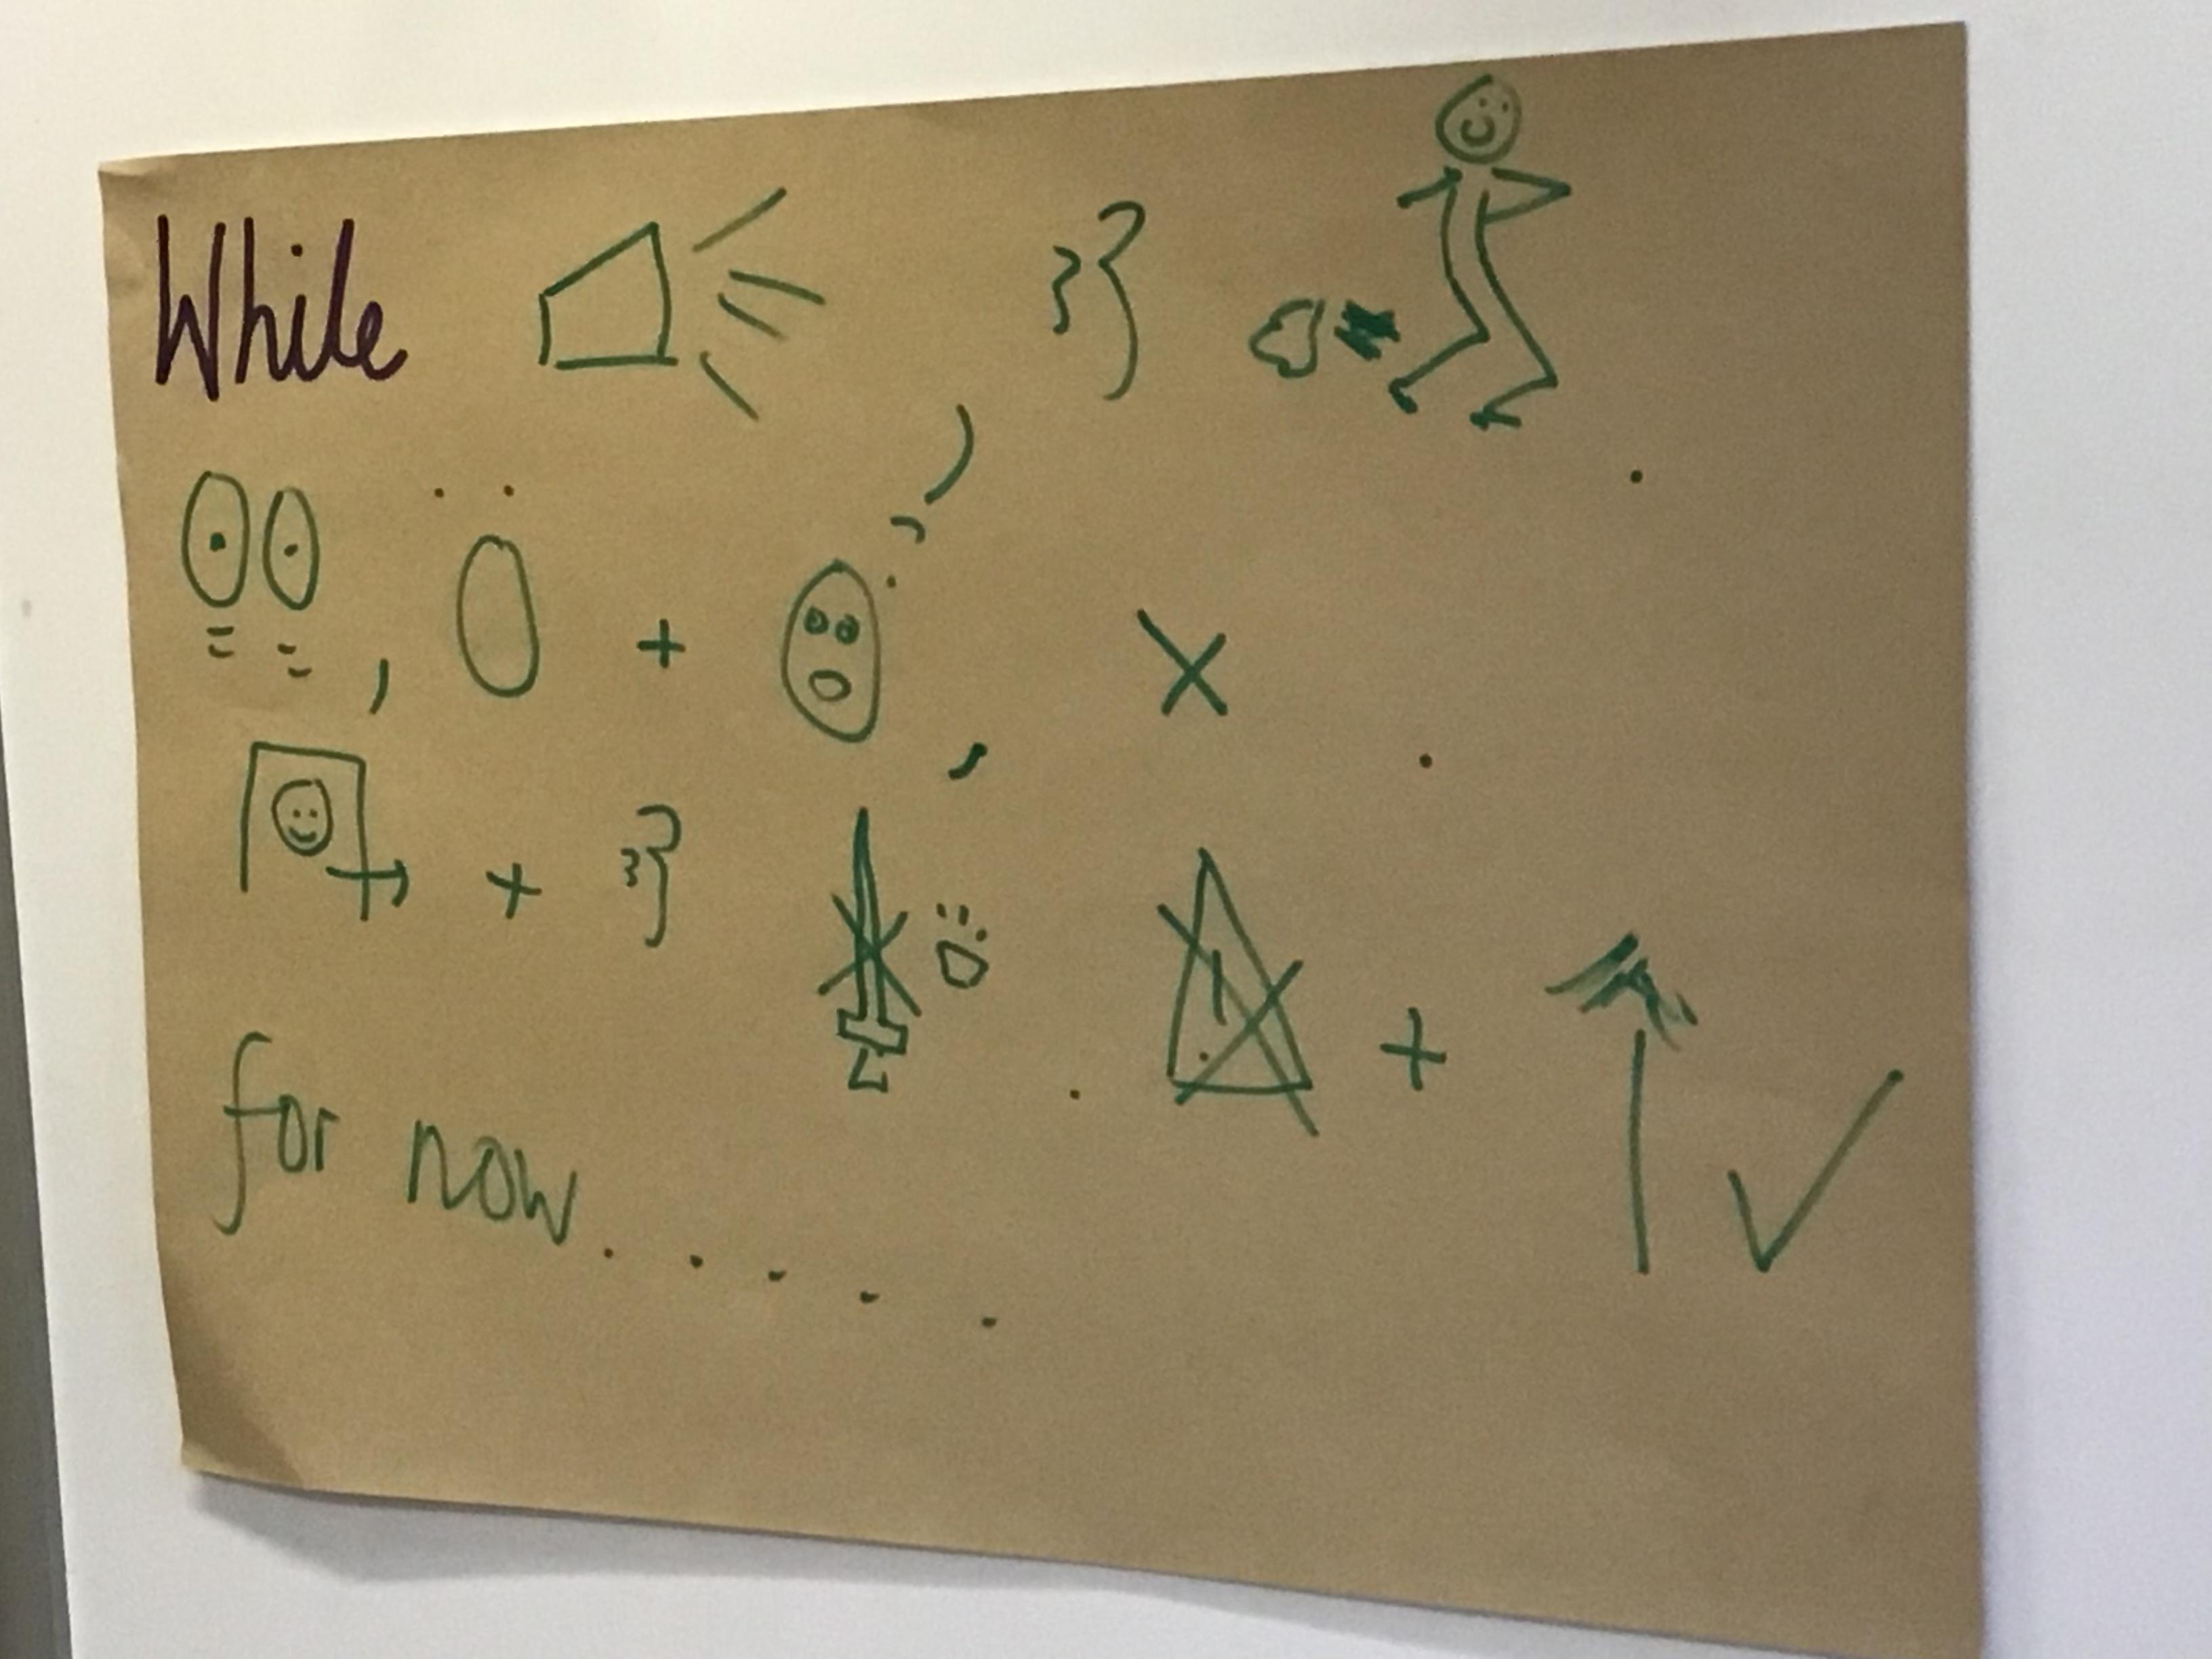 While
for now.....